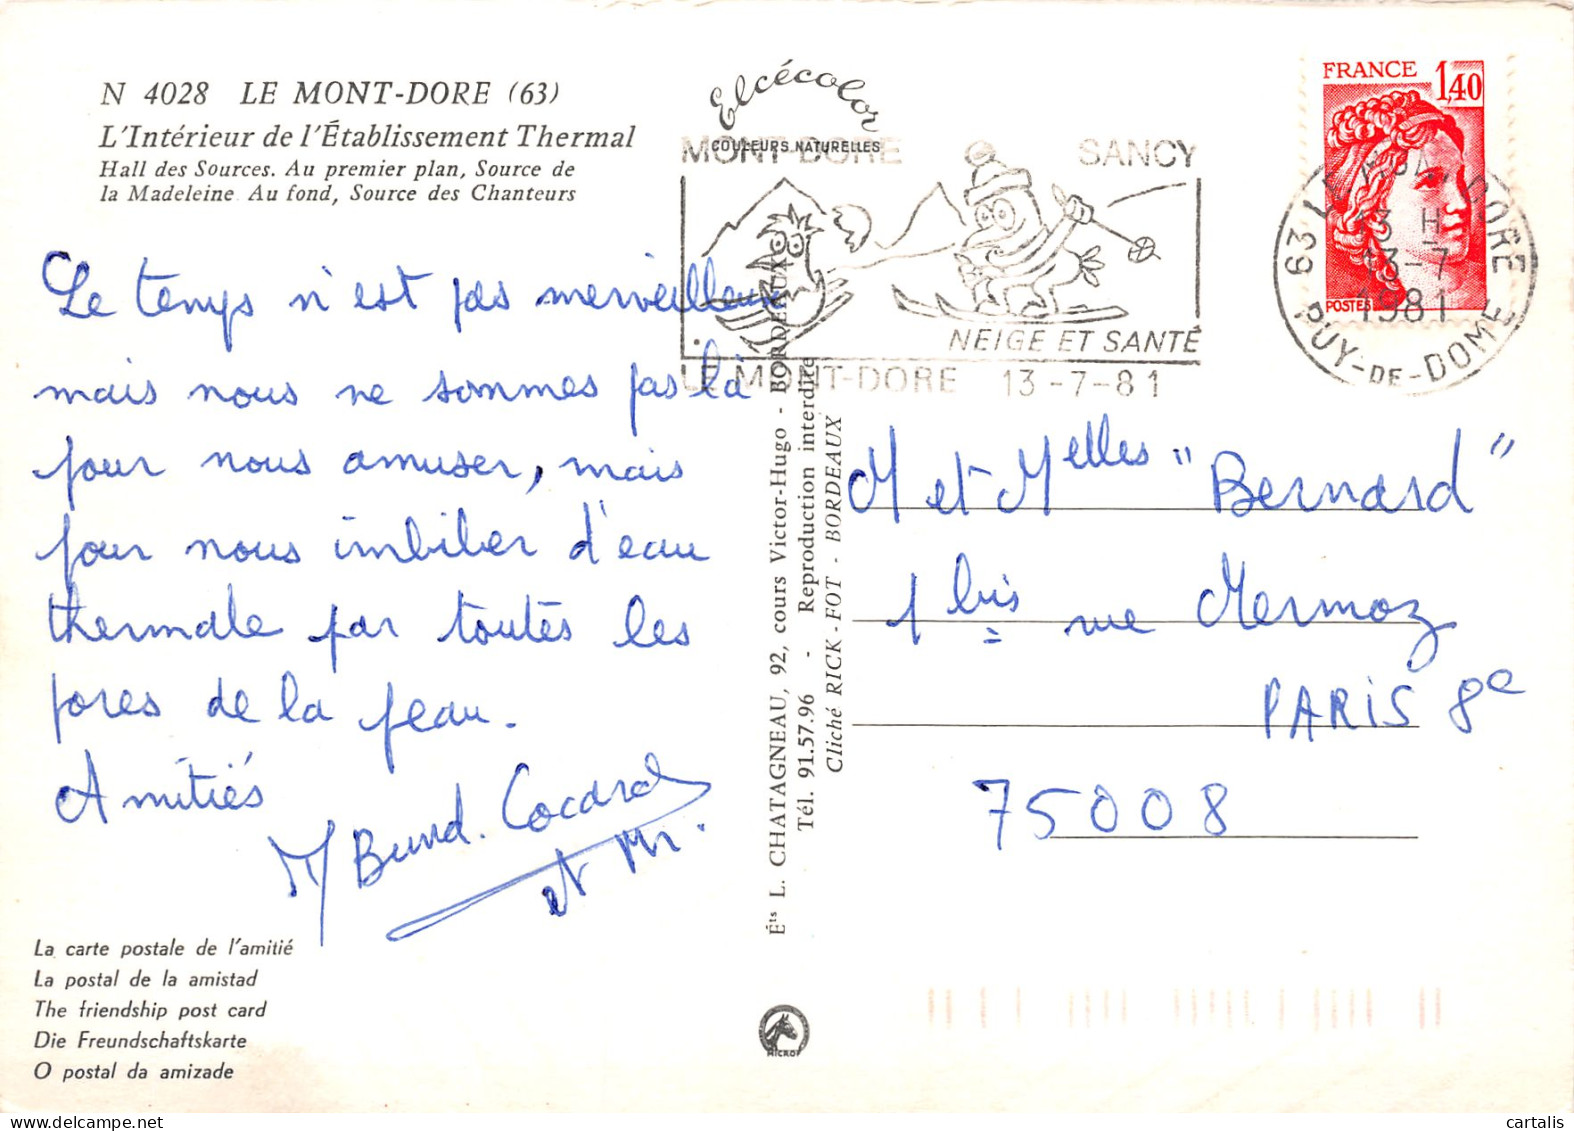 N 4028 LE MONT-DORE (63)
L'Intérieur de l'Établissement Thermal
Hall des Sources. Au premier plan, Source de
la Madeleine Au fond, Source des Chanteurs
Elcécolor
COULEURS NATURELLES
MONT-DORE SANCY
NEIGE ET SANTÉ
LE MONT-DORE 13-7-81
FRANCE 1,40
POSTES
63 LE MONT-DORE
13 H
13-7
1981
PUY-DE-DOME
Le temps n'est pas merveilleux
mais nous ne sommes pas là
pour nous amuser, mais
pour nous imbiber d'eau
thermale par toutes les
pores de la peau.
Amitiés
M Cocard
M et Melles "Bernard"
1 bis rue Mermoz
PARIS 8e
75008
Éts L. CHATAGNEAU, 92, cours Victor-Hugo - BORDEAUX
Tél. 91.57.96 - Reproduction interdite
Cliché RICK-FOT - BORDEAUX
La carte postale de l'amitié
La postal de la amistad
The friendship post card
Die Freundschaftskarte
O postal da amizade
cartalis